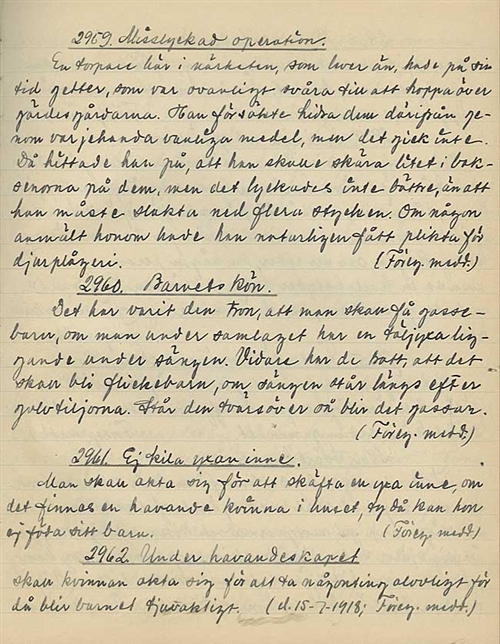 2959. Misslyckad operation.
En torpare här i närheten, som lever än, hade på sin
tid getter, som var ovanligt svåra till att hoppa över
gärdesgårdarna. Han försökte hidra dem därifrån ge-
nom varjehanda vanliga medel, men det gick inte.
Då hittade han på, att han skulle skära litet i bak-
senorna på dem, men det lyckades inte bättre, än att
han måste slakta ned flera stycken. Om någon
anmält honom hade han naturligen fått plikta för
djurplågeri. (Förey. medd.)
2960. Barnets kön.
Det har varit den tron, att man skall få gosse-
barn, om man under samlaget har en täljyxa lig-
gande under sängen. Vidare har de trott, att det
skall bli flickebarn, om sängen står längs efter
golvtiljorna. Står den tvärsöver så blir det gossar.
(Förey. medd.)
2961. Ej kila yxan inne.
Man skall akta sig för att skäfta en yxa inne, om
det finnas en havande kvinna i huset, ty då kan hon
ej föda sitt barn. (Förey. medd.)
2962. Under havandeskapet
skall kvinnan akta sig för att ta någonting olovligt för
då blir barnet tjuvaktigt. (d. 15-7-1918; Förey. medd.)